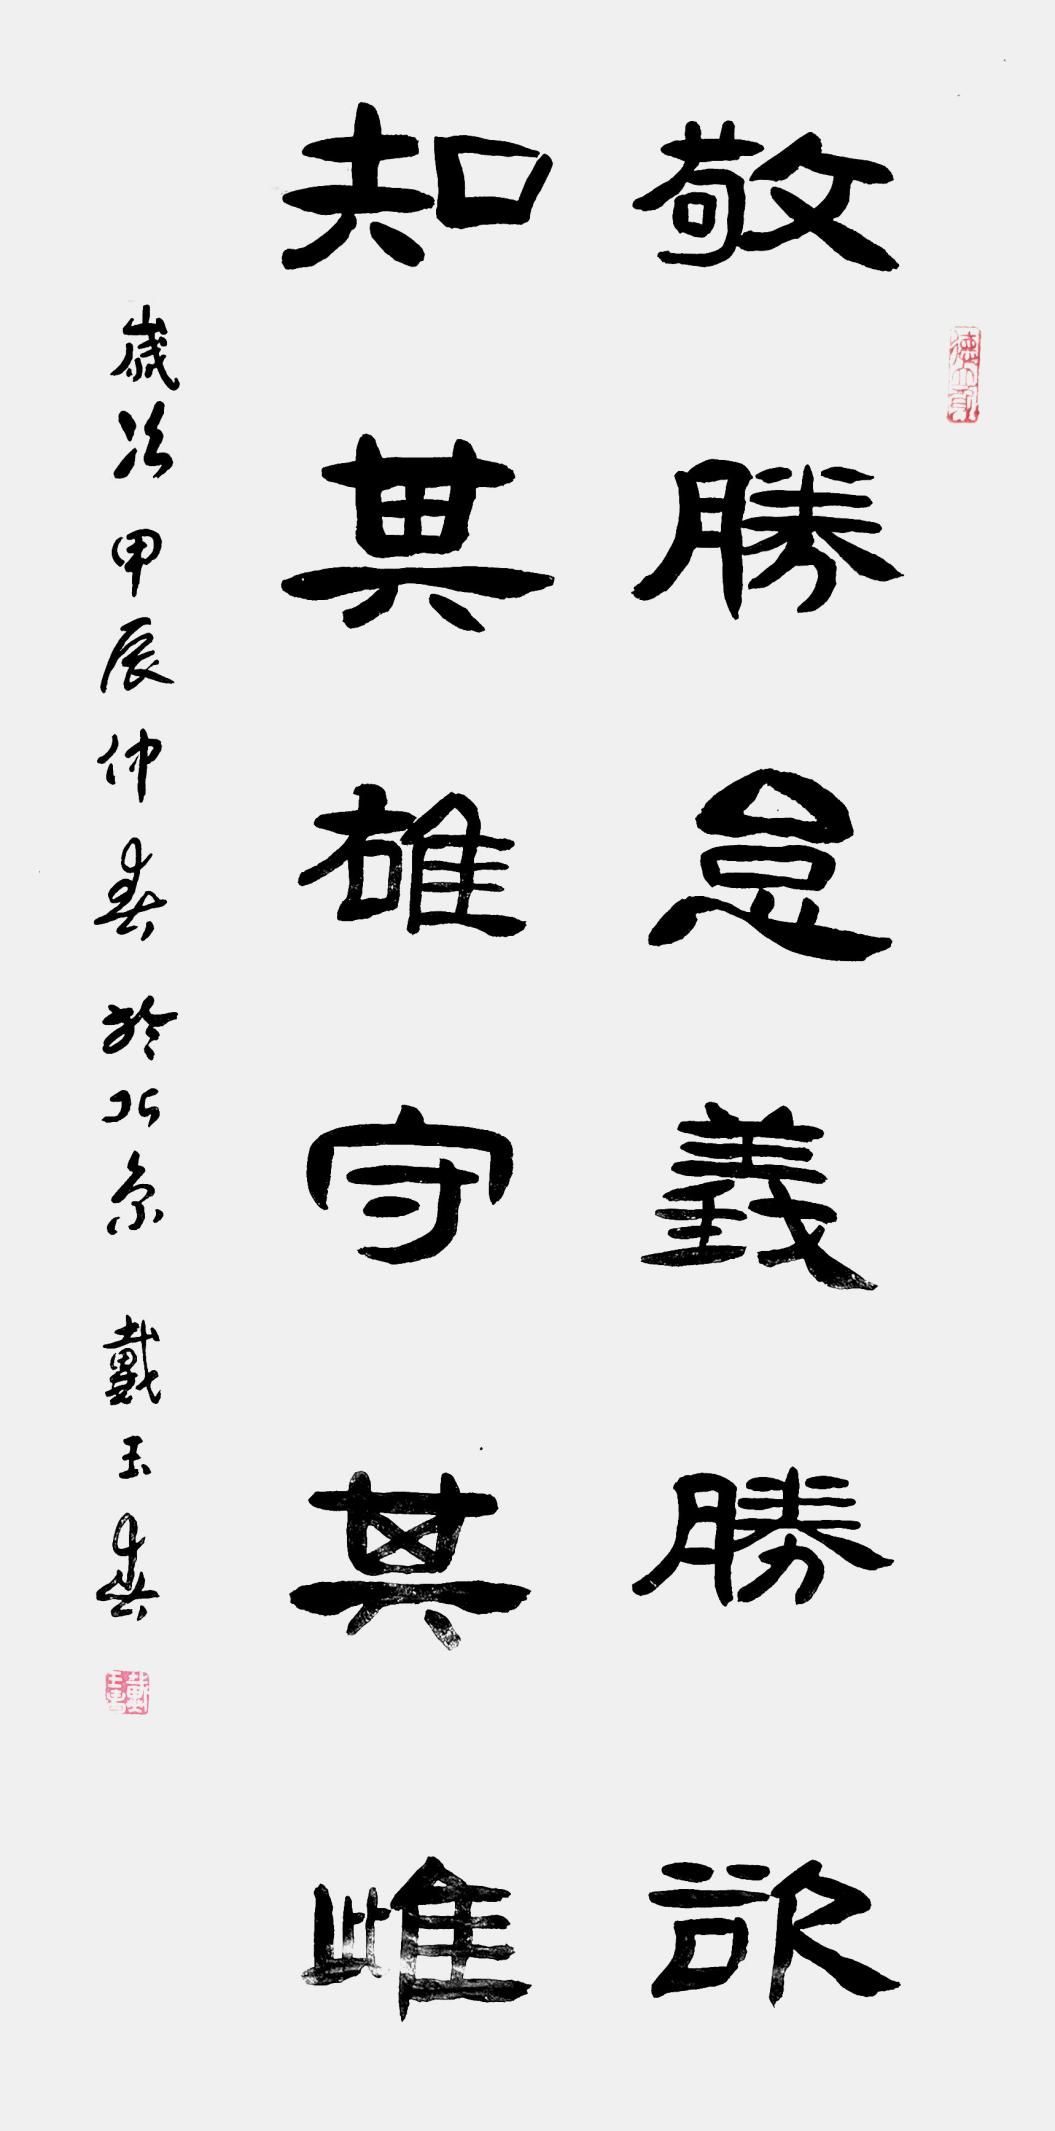 敬勝怠義勝欲
知其雄守其雌
歲次甲辰仲春於北京戴玉春